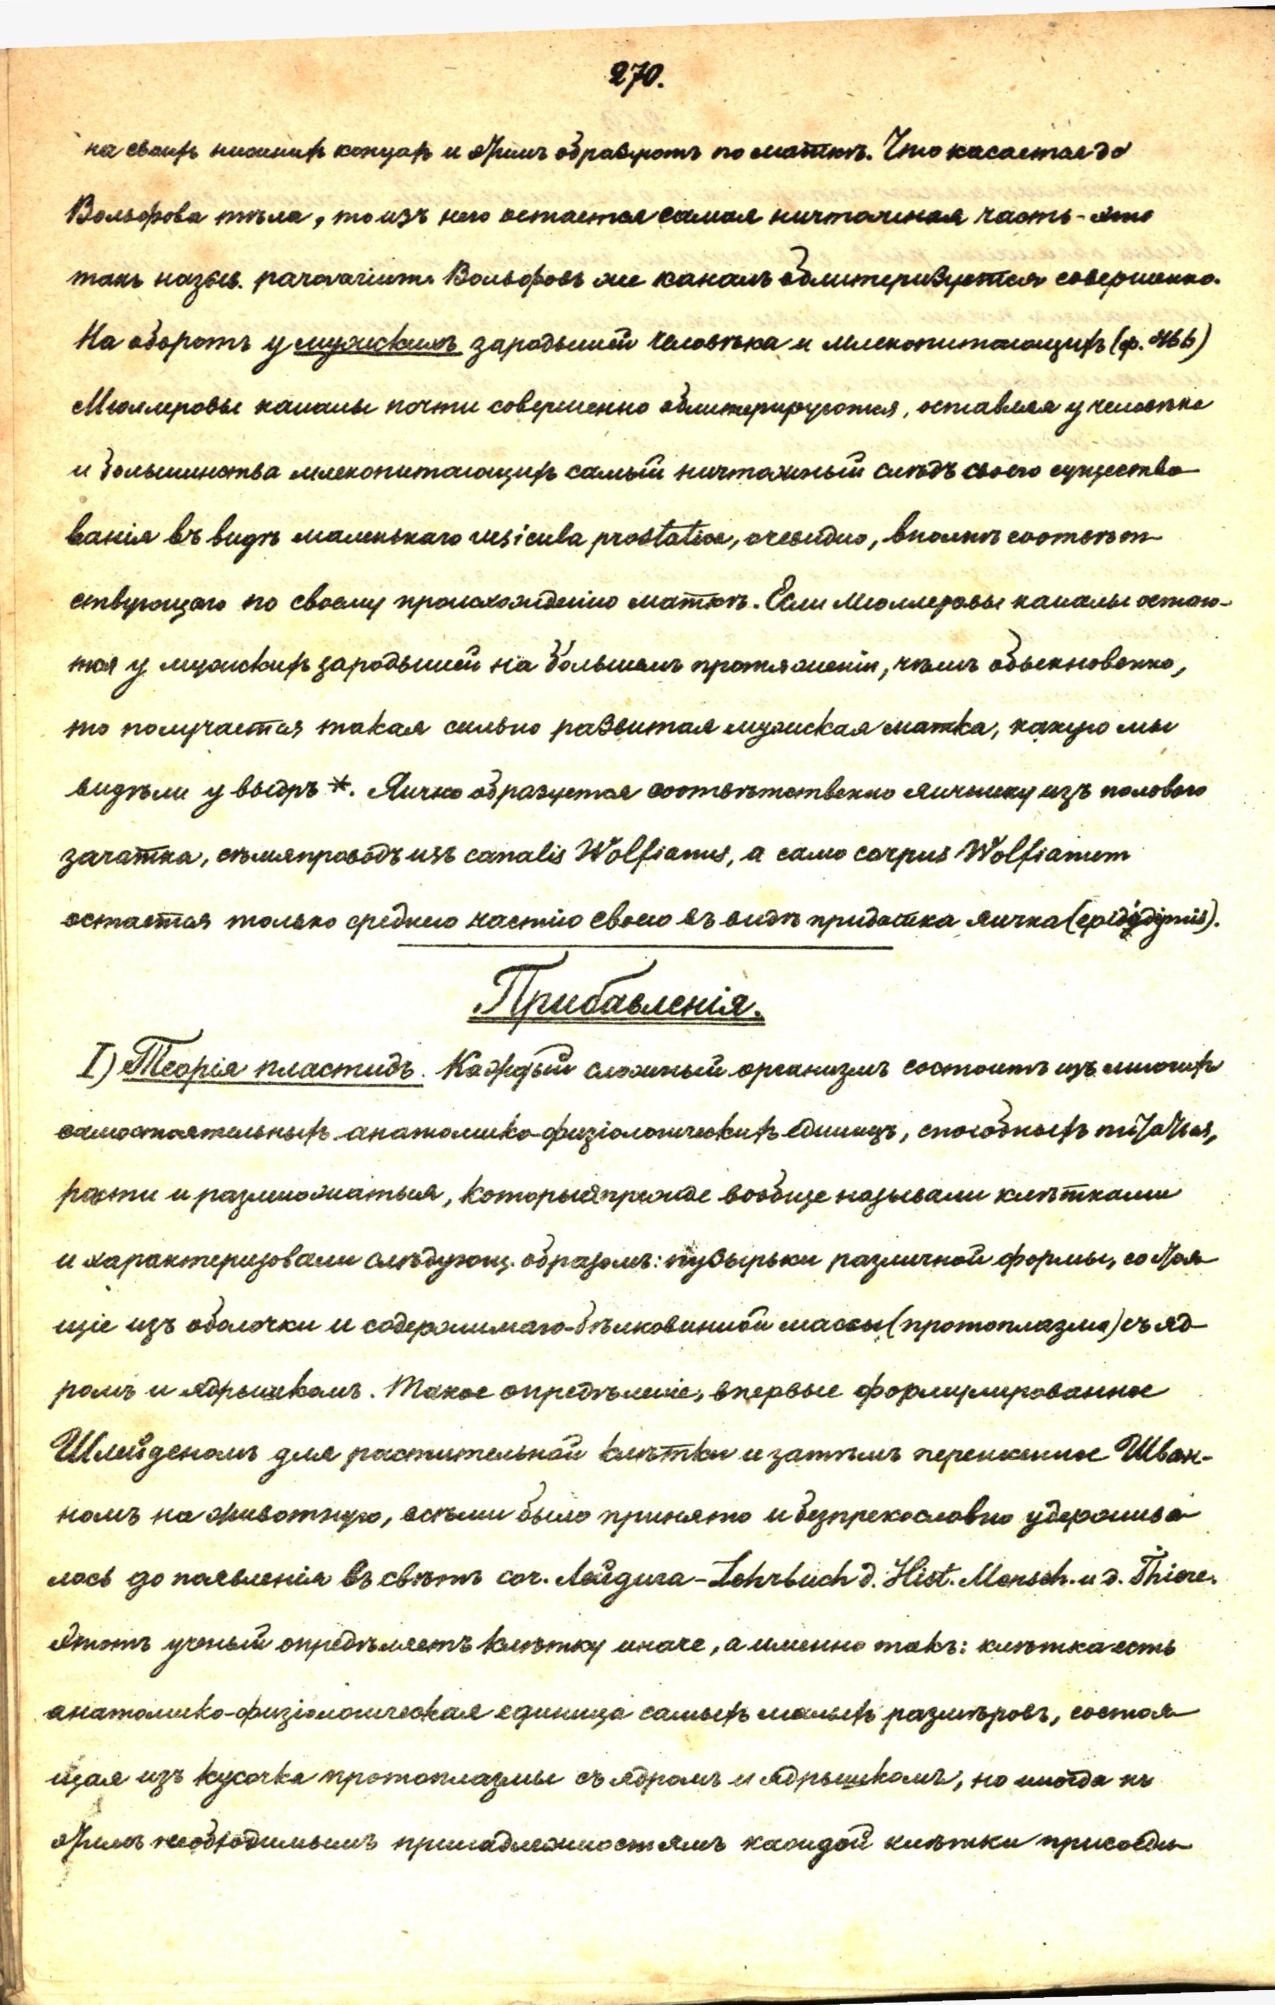 270.
на своихъ нижнихъ концахъ и этимъ образуютъ по маткѣ. Что касается до
Вольфова тѣла, то изъ него остается самая ничтожная часть - это
такъ назыв. parovarium. Вольфовъ же каналъ облитеризуется совершенно.
На оборотъ у мужскихъ зародышей человѣка и млекопитающихъ (ф. 466)
Мюллеровы каналы почти совершенно облитерируются, оставляя у человѣка
и большинства млекопитающихъ самый ничтожный слѣдъ своего существо
ванія въ видѣ маленькаго vesicula prostatica, очевидно, вполнѣ соотвѣт-
ствующаго по своему происхожденію маткѣ. Если Мюллеровы каналы остаю-
тся у мужскихъ зародышей на бóльшемъ протяженіи, чѣмъ обыкновенно,
то получается такая сильно развитая мужская матка, какую мы
видѣли у выдръ *. Яичко образуется соотвѣтственно яичнику изъ полового
зачатка, сѣмяпроводъ изъ canalis Wolfianus, а само corpus Wolfianum
остается только среднею частію своею въ видѣ придатка яичка (epididymis).
Прибавленія.
I) Теорія пластидъ. Каждый сложный организмъ состоитъ изъ многихъ
самостоятельныхъ анатомико-физіологическихъ единицъ, способныхъ питаться,
расти и размножаться, которыя прежде вообще называли клѣтками
и характеризовали слѣдующ. образомъ: пузырьки различной формы, состоя
щіе изъ оболочки и содержимаго-бѣлковинной массы (протоплазма) съ яд-
ромъ и ядрышкомъ. Такое опредѣленіе, впервые формулированное
Шлейденомъ для растительной клѣтки и затѣмъ перенесенное Шван-
номъ на животную, всѣми было принято и безпрекословно удержива
лось до появленія въ свѣтъ соч. Лейдига - Lehrbuch d. Hist. Mensch. u d. Thiere.
Этотъ ученый опредѣляетъ клѣтку иначе, а именно такъ: клѣтка есть
анатомико-физіологическая единица самыхъ малыхъ размѣровъ, состоя
щая изъ кусочка протоплазмы съ ядромъ и ядрышкомъ, но иногда къ
этимъ необходимымъ принадлежностямъ каждой клѣтки присоеди